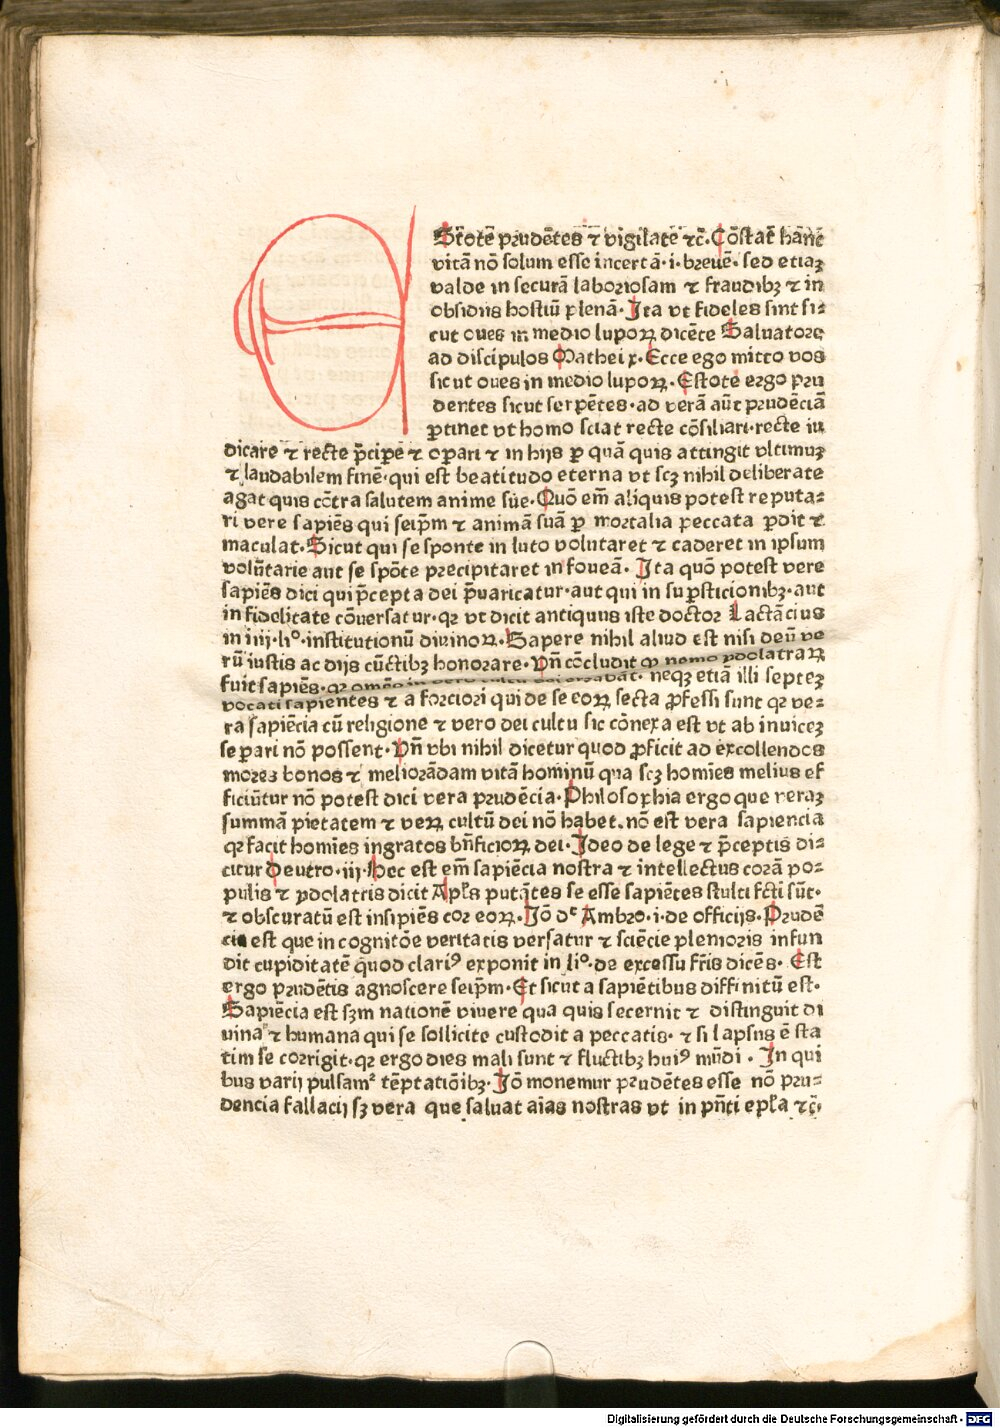 EStotē prudētes ⁊ vigilate ⁊c̄. Cōstat hanc
vitā nō solum esse incertā·i·breuē· sed etiaꝫ
valde in securā laboriosam ⁊ fraudibꝫ ⁊ in
obsidiis hostiū plenā· Ita vt fideles sint si⸗
cut oues in medio lupoꝝ dicēte Saluatore
ad discipulos Mathei x· Ecce ego mitto vos
sicut oues in medio lupoꝝ· Estote ergo pru
dentes sicut serpētes· ad verā aūt prudēciā
ꝑtinet vt homo sciat recte cōsiliari·recte iu
dicare ⁊ recte p̄cipe ⁊ oꝑari ⁊ in hijs ꝑ quā quis attingit vltimuꝫ
⁊ laudabilem finē· qui est beatitudo eterna vt scꝫ nihil deliberate
agat quis cōtra salutem anime sue· Quō em̄ aliquis potest reputa⸗
ri vere sapiēs qui seip̄m ⁊ animā suā ꝑ mortalia peccata ꝑdit ⁊
maculat· Sicut qui se sponte in luto volutaret ⁊ caderet in ipsum
volūtarie aut se spōte precipitaret in foueā· Ita quō potest vere
sapiēs dici qui p̄cepta dei p̄uaricatur·aut qui in suꝑsticionibꝫ·aut
infidelitate cōuersatur·qꝛ vt dicit antiquus iste doctor Lactācius
in iiij·li°·institutionū diuinoꝝ· Sapere nihil aliud est nisi deū ve
rū iustis ac dijs cūctibꝫ honorare· Vn̄ cōcludit ꝙ nemo ydolatraꝝ
fuit sapiēs· qꝛ neqꝫ etiā illi septeꝫ
vocati sapientes ⁊ a forciori qui de se eoꝝ secta ꝓfessi sunt qꝛ ve⸗
ra sapiēcia cū religione ⁊ vero dei cultu sic cōnexa est vt ab inuiceꝫ
seꝑari nō possent· Vn̄ vbi nihil dicetur quod ꝓficit ad excollendos
mores bonos ⁊ meliorādam vitā hominū qua scꝫ homīes melius ef
ficiūtur nō potest dici vera prudēcia· Philosophia ergo que veraꝫ
summā pietatem ⁊ veꝝ cultū dei nō habet·nō est vera sapiencia
qꝛ facit homīes ingratos bn̄ficioꝝ dei· Ideo de lege ⁊ p̄ceptis di⸗
citur Deutro·iij· Hec est em̄ sapiēcia nostra ⁊ intellectus corā po⸗
pulis ⁊ ydolatris dicit Apłs putātes se esse sapiētes stulti fcti sūt·
⁊ obscuratū est insipiēs cor eoꝝ· Iō dᶜ Ambro·i·de officijs· Prudē
cia est que in cognitōe veritatis versatur ⁊ sciēcie plenioris infun
dit cupiditatē quod clariꝰ exponit in li°·de excessu fr̄is dicēs· Est
ergo prudētis agnoscere seip̄m· Et sicut a sapiētibus diffinitū est·
Sapiēcia est sꝫm nationē viuere qua quis secernit ⁊ distinguit di
uina ⁊ humana qui se sollicite custodit a peccatis· ⁊ si lapsus ē sta
tim se corrigit·qꝛ ergo dies mali sunt ⁊ fluctibꝫ huiꝰ mūdi · In qui
bus varij pulsamᷣ tēptatiōibꝫ· Iō monemur prudētes esse nō pru⸗
dencia fallacij sꝫ vera que saluat aīas nostras vt in pn̄ti epl̄a ⁊c̄·